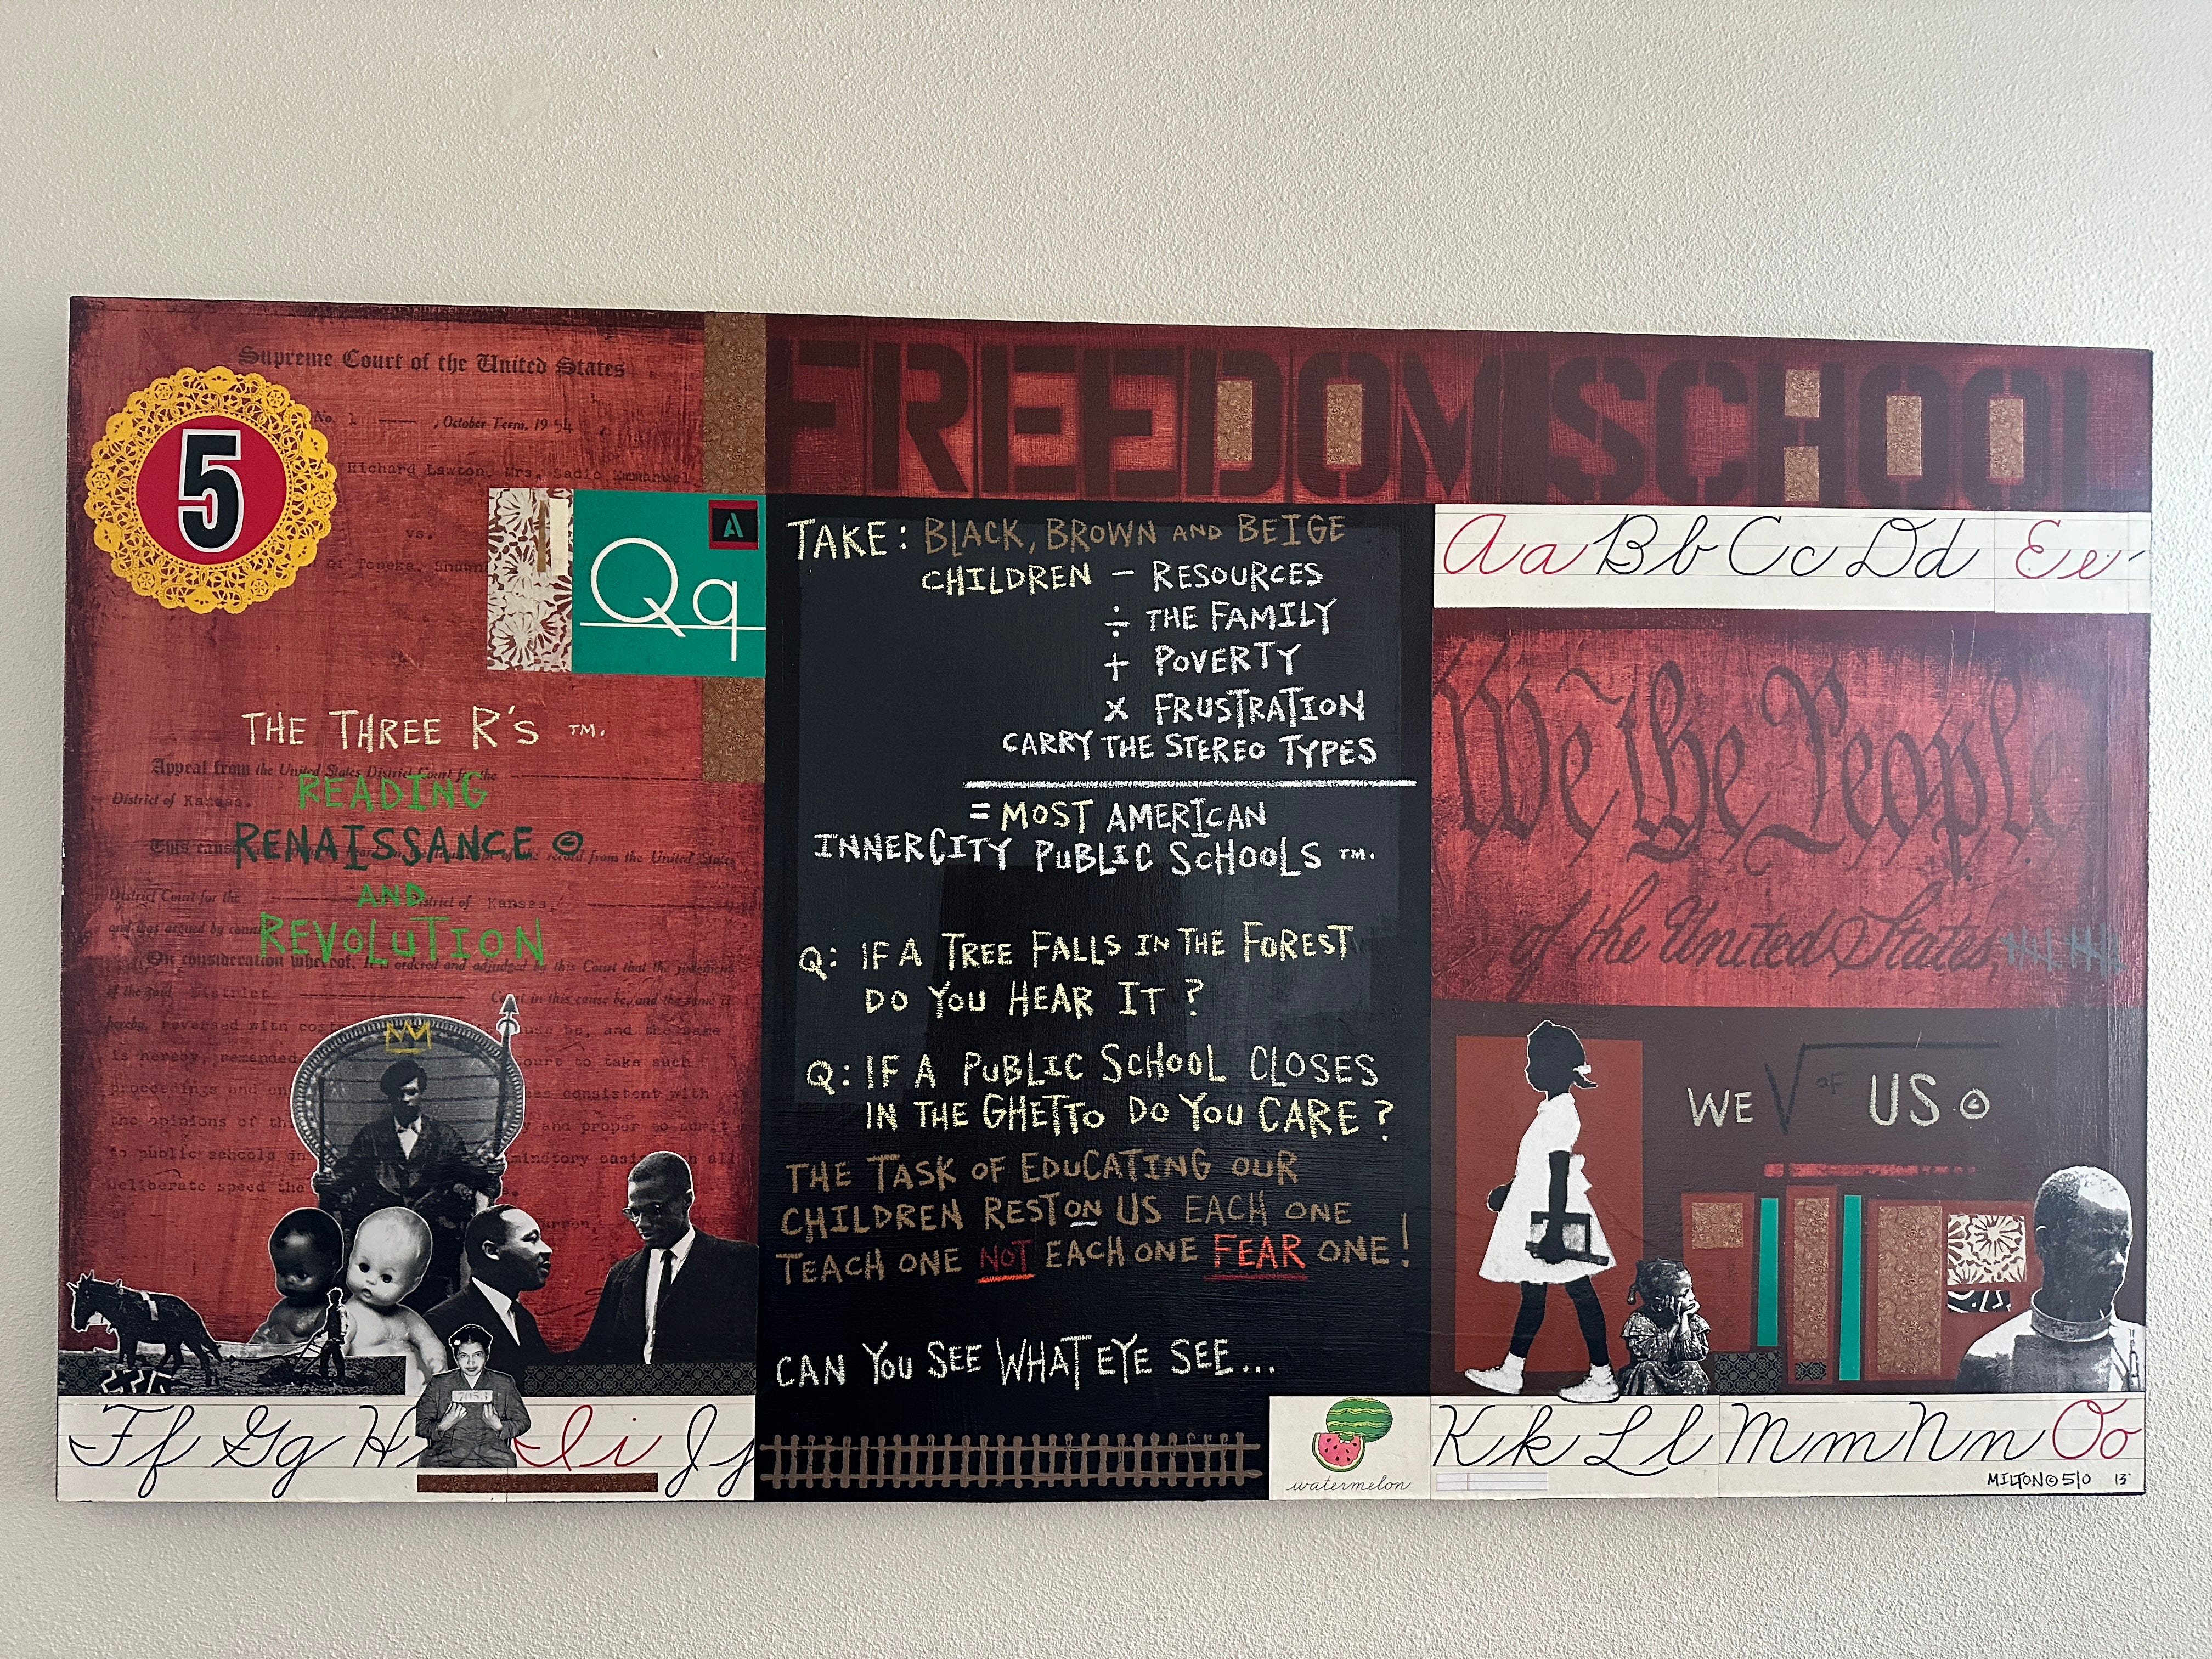 FREEDOM SCHOOL
Supreme Court of the United States
No. 1 , October Term, 19 54
Richard Lawton, Mrs. Sadie Emmanuel
vs.
of Topeka, Shawn
5
A
Qq
THE THREE R'S TM.
Appeal from the United States District Court for the
READING
District of Kansas.
RENAISSANCE ©
This cause record from the United States
AND
District Court for the District of Kansas,
REVOLUTION
and was argued by counsel
On consideration whereof, It is ordered and adjudged by this Court that the judgment
of the said District Court in this cause be, and the same is
hereby, reversed with cost cause be, and the same
is hereby, remanded ourt to take such
proceedings and es consistent with
the opinions of th y and proper to admit
to public schools on minatory basis all
deliberate speed the
Warren,
7053
Ff Gg H Ii Jj
TAKE: BLACK, BROWN AND BEIGE
CHILDREN - RESOURCES
÷ THE FAMILY
+ POVERTY
x FRUSTRATION
CARRY THE STEREO TYPES
= MOST AMERICAN
INNERCITY PUBLIC SCHOOLS TM.
Q: IF A TREE FALLS IN THE FOREST
DO YOU HEAR IT?
Q: IF A PUBLIC SCHOOL CLOSES
IN THE GHETTO DO YOU CARE?
THE TASK OF EDUCATING OUR
CHILDREN REST ON US EACH ONE
TEACH ONE NOT EACH ONE FEAR ONE!
CAN YOU SEE WHAT EYE SEE...
watermelon
Aa Bb Cc Dd Ee
We the People
of the United States,
WE √ OF US ©
Kk Ll Mm Nn Oo
MILTON © 510 13